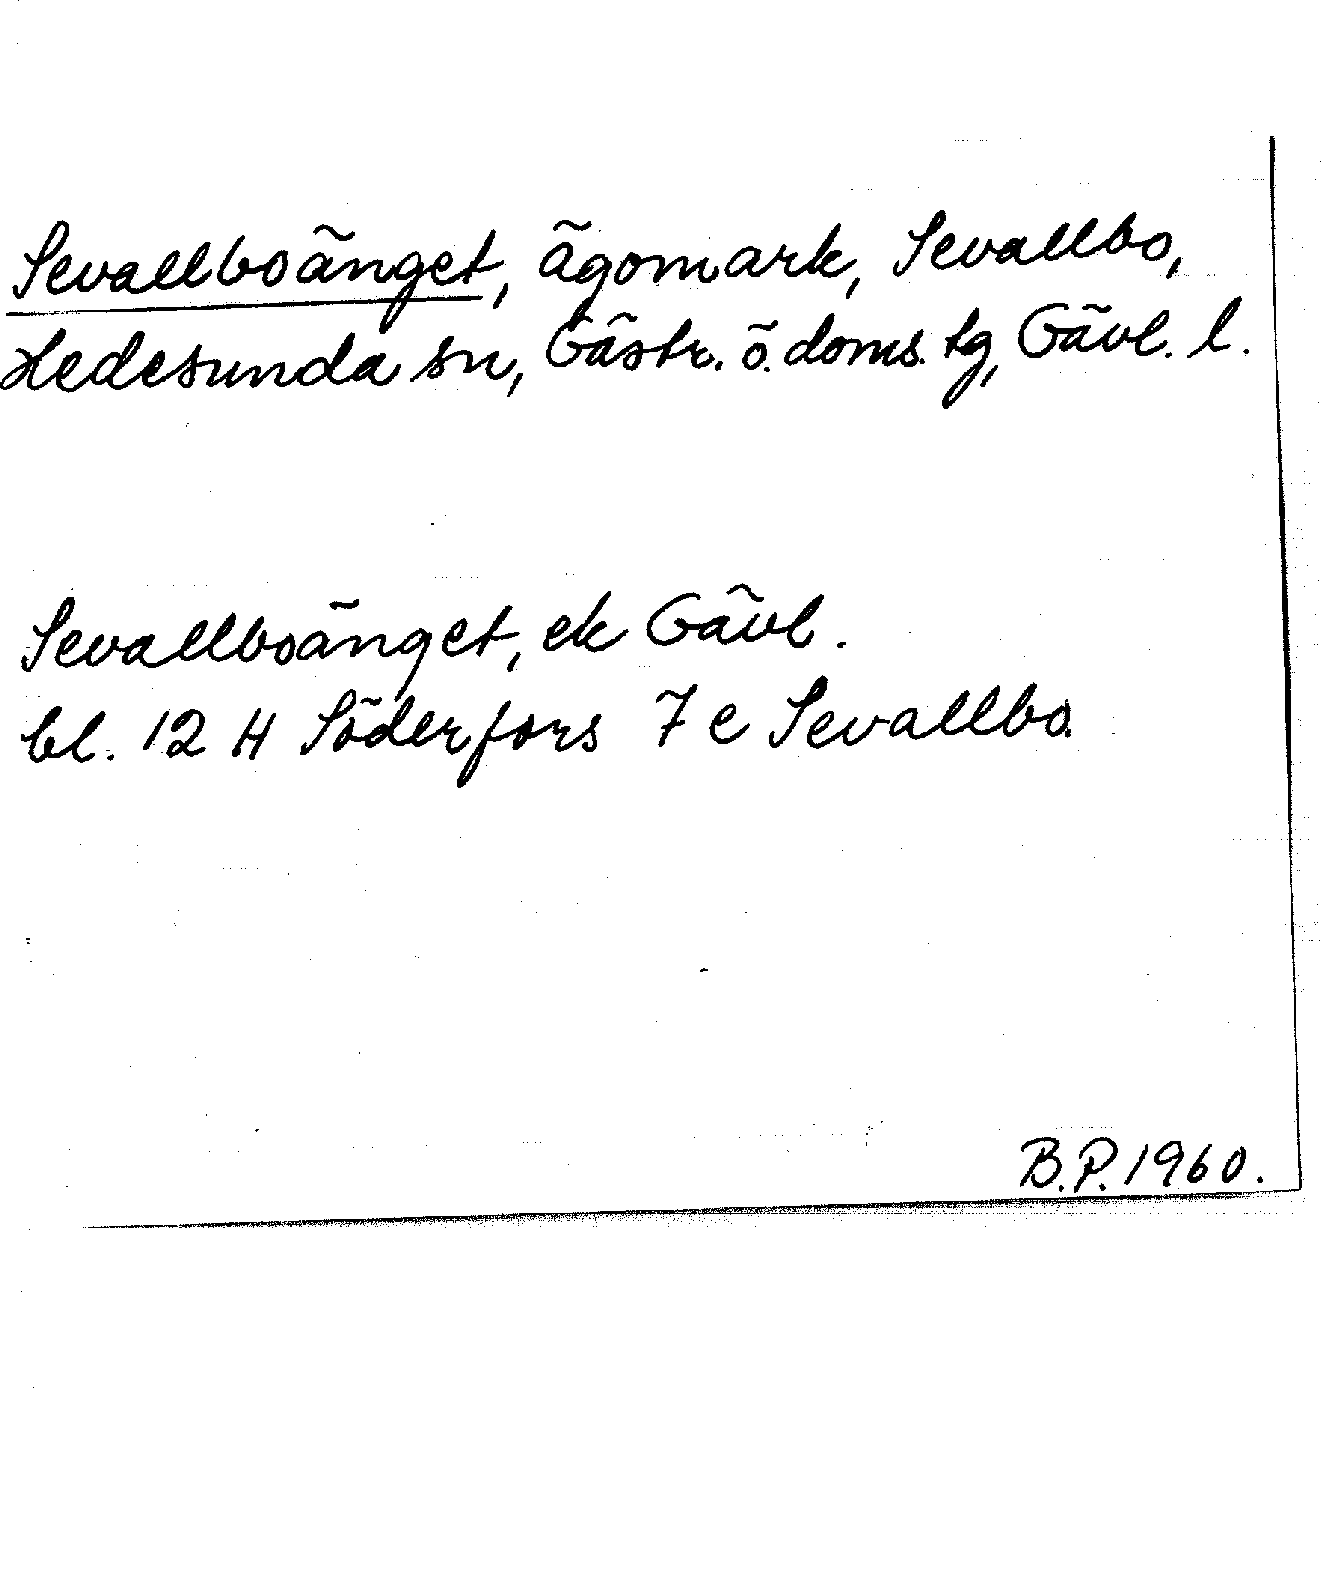 Sevallboänget, ägomark, Sevallbo,
Hedesunda sn, Gästr. ö. doms. tg, Gävl. l.
Sevallboänget, ek Gävl.
bl. 12 H Söderfors 7 e Sevallbo.
B.P. 1960.